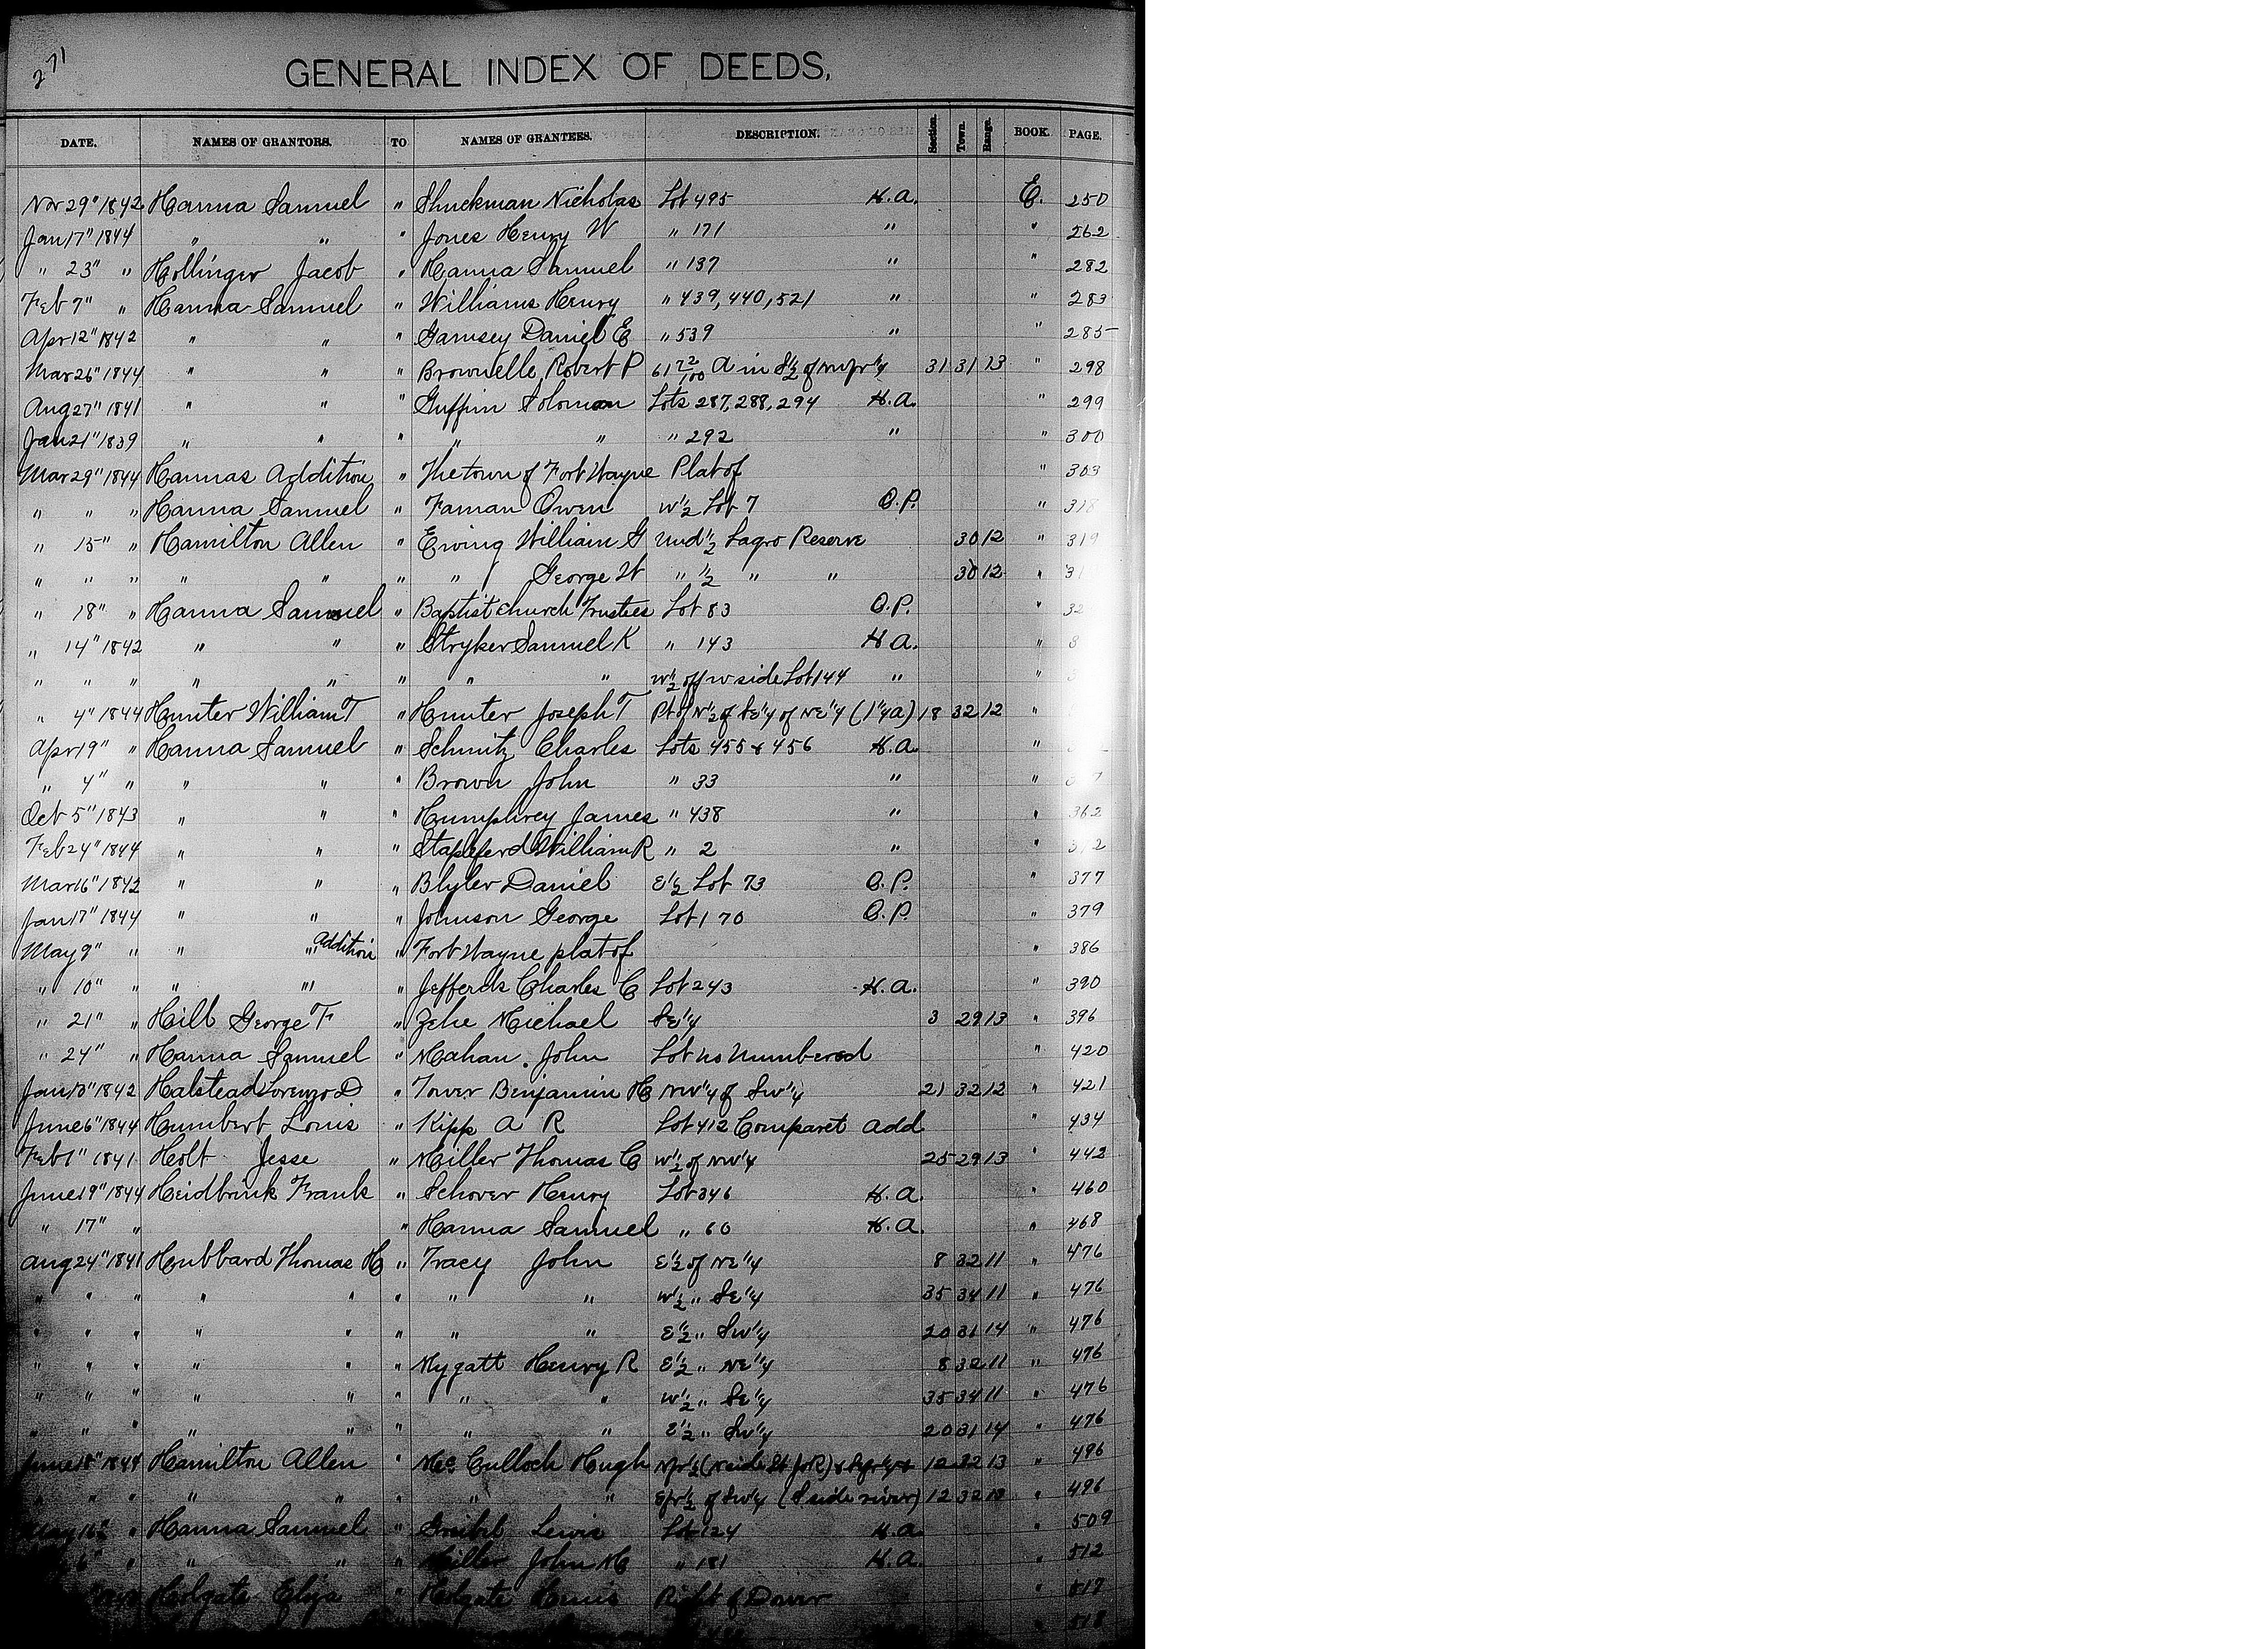 271
GENERAL INDEX OF DEEDS,
DATE. NAMES OF GRANTORS. TO NAMES OF GRANTEES. DESCRIPTION. Section. Town. Range. BOOK. PAGE.
Nov 29" 1842 Hanna Samuel " Shuckman Nicholas Lot 495 H.A. E. 250
Jan 17" 1844 " " " Jones Henry W " 171 " " 262
" 23" " Hollinger Jacob " Hanna Samuel " 137 " " 282
Feb 7" " Hanna Samuel " Williams Henry " 439, 440, 521 " " 283
Apr 12" 1842 " " " Garnsey Daniel E " 539 " " 285
Mar 26" 1844 " " " Brownelle Robert P 61 72/100 A in S 1/2 of nw fr 1/4 31 31 13 " 298
Aug 27" 1841 " " " Guffin Solomon Lots 287, 288, 294 H.A. " 299
Jan 21" 1839 " " " " " " 292 " " 300
Mar 29" 1844 Hannas Addition " The town of Fort Wayne Plat of " 303
" " " Hanna Samuel " Faman Owen W 1/2 Lot 7 O.P. " 318
" 15" " Hamilton Allen " Ewing William G Und 1/2 Lagro Reserve 30 12 " 319
" " " " " " " George W " 1/2 " " 30 12 " 31
" 18" " Hanna Samuel " Baptist Church Trustees Lot 83 O.P. " 32
" 14" 1842 " " " Stryker Samuel K " 143 H.A. " 3
" " " " " " " " W 1/2 of w side Lot 144 " "
" 4" 1844 Hunter William T " Hunter Joseph T Pt of N 1/2 of SE 1/4 of NE 1/4 (1 1/4 a) 18 32 12 "
Apr 19" " Hanna Samuel " Schmitz Charles Lots 455 & 456 H.A. "
" 4" " " " " Brown John " 33 " " 7
Oct 5" 1843 " " " Humphrey James " 438 " " 362
Feb 24" 1844 " " " Stapleford William R " 2 " "
Mar 16" 1842 " " " Blyler Daniel E 1/2 Lot 73 O.P. " 377
Jan 17" 1844 " " " Johnson George Lot 170 O.P. " 379
May 9" " " " Addition " Fort Wayne plat of " 386
" 10" " " " " Jefferds Charles C Lot 243 H.A. " 390
" 21" " Hill George F " Zehe Michael SE 1/4 3 29 13 " 396
" 24" " Hanna Samuel " Mahan John Lot no Numbered " 420
Jan 10" 1842 Halstead Lorenzo D " Tower Benjamin H NW 1/4 of SW 1/4 21 32 12 " 421
June 6" 1844 Humbert Louis " Kipp A R Lot 412 Comparet Add " 434
Feb 1" 1841 Holt Jesse " Miller Thomas C W 1/2 of NW 1/4 25 29 13 " 442
June 19" 1844 Heidbrink Frank " Schover Henry Lot 346 H.A. " 460
" 17" " " Hanna Samuel " 60 H.A. " 468
Aug 24" 1841 Hubbard Thomas H " Tracy John E 1/2 of NE 1/4 8 32 11 " 476
" " " " " " " " W 1/2 " SE 1/4 35 34 11 " 476
" " " " " " " " E 1/2 " SW 1/4 20 31 14 " 476
" " " " " " Mygatt Henry R E 1/2 " NE 1/4 8 32 11 " 476
" " " " " " " " W 1/2 " SE 1/4 35 34 11 " 476
" " " " " " " " E 1/2 " SW 1/4 20 31 14 " 476
June 18" 1844 Hamilton Allen " McCulloch Hugh N fr 1/2 (N side St Jo R) & 12 32 13 " 496
" " " " " " " " E fr 1/2 of SW 1/4 (S side river) 12 32 13 " 496
May 16" " Hanna Samuel " Lewis Lot 124 H.A. " 509
6" " " " " Miller John M " 181 H.A. " 512
Holgate Eliza " Holgate Right of Dower " 517
" 518